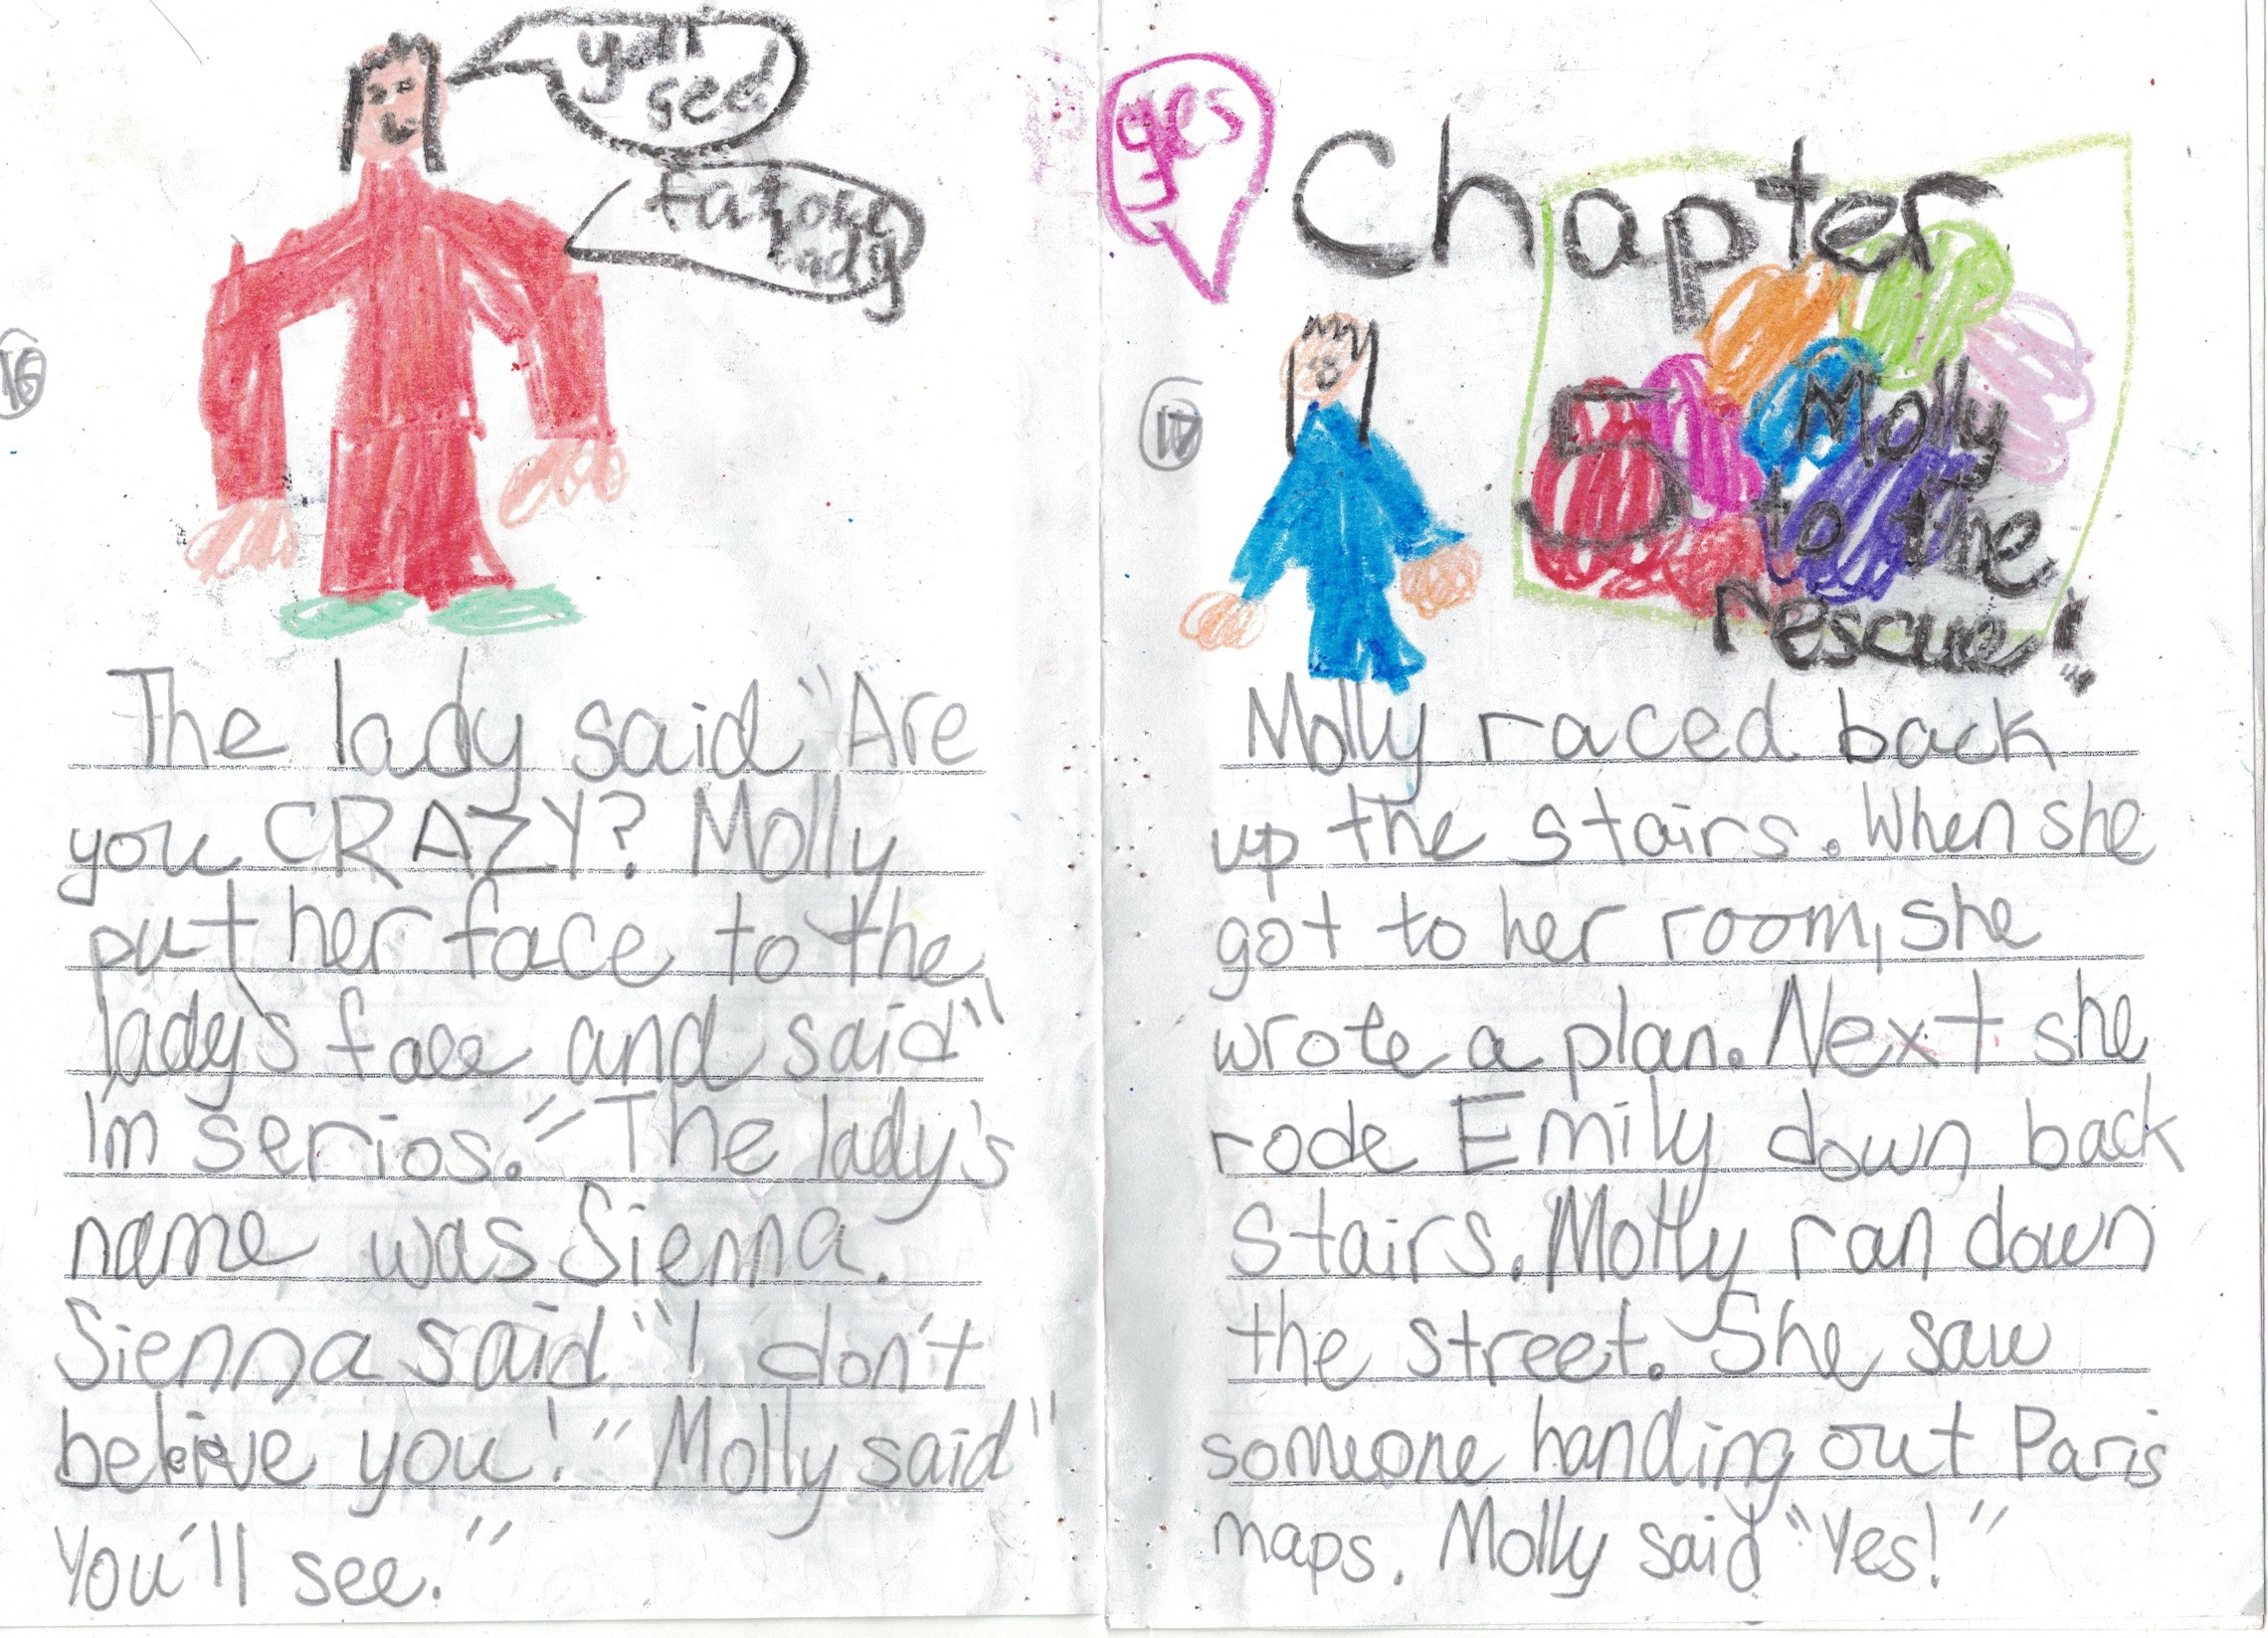 you'll
see
16
The lady said "Are
you CRAZY? Molly
put her face to the
lady's face and said"
Im serios." The lady's
name was Sienna.
Sienna said "I don't
beleive you!" Molly said"
You'll see."
yes
Chapter
5 Molly
to the
rescue!
17
Molly raced back
up the stairs. When she
got to her room, she
wrote a plan. Next she
rode Emily down back
stairs. Molly ran down
the street. She saw
someone handing out Paris
maps. Molly said "Yes!"